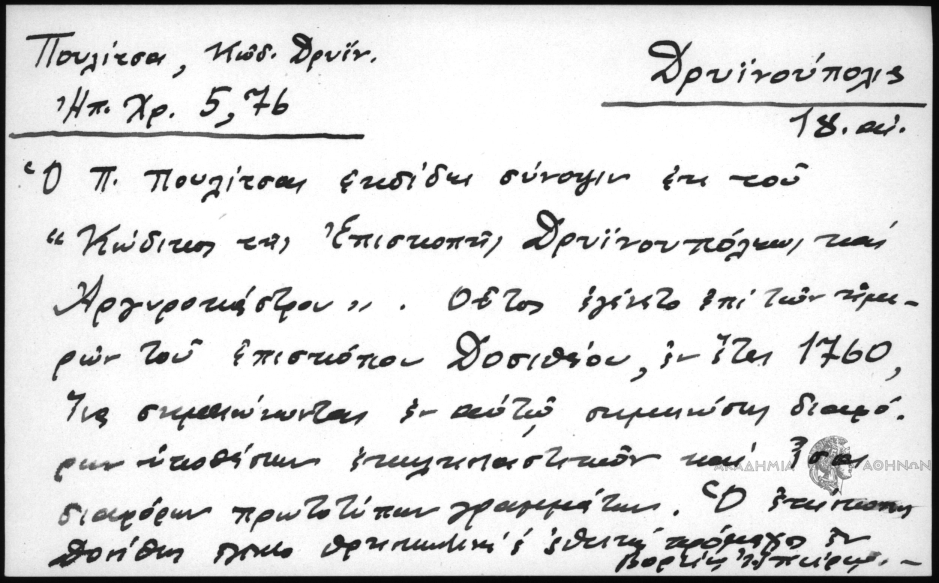 Πουλίτσα, Κώδ. Δρυϊν.
Ἠπ. Χρ. 5, 76
Δρυϊνούπολις
18. αἰ.
Ὁ Π. Πουλίτσας ἐκδίδει σύνοψιν ἐκ τοῦ
“Κώδικος τῆς Ἐπισκοπῆς Δρυϊνουπόλεως καὶ
Ἀργυροκάστρου”. Οὗτος ἐγένετο ἐπὶ τῶν ἡμε-
ρῶν τοῦ ἐπισκόπου Δοσιθέου, ἐν ἔτει 1760,
ἵνα σημειώνωνται ἐν αὐτῷ σημειώσεις διαφό-
ρων ὑποθέσεων ἐκκλησιαστικῶν καὶ ἴσα
διαφόρων πρωτοτύπων γραμμάτων. Ὁ ἐπίσκοπος
Δοσίθεος
ἐν
Βορείῳ Ἠπείρῳ. –
ΑΚΑΔΗΜΙΑ ΑΘΗΝΩΝ